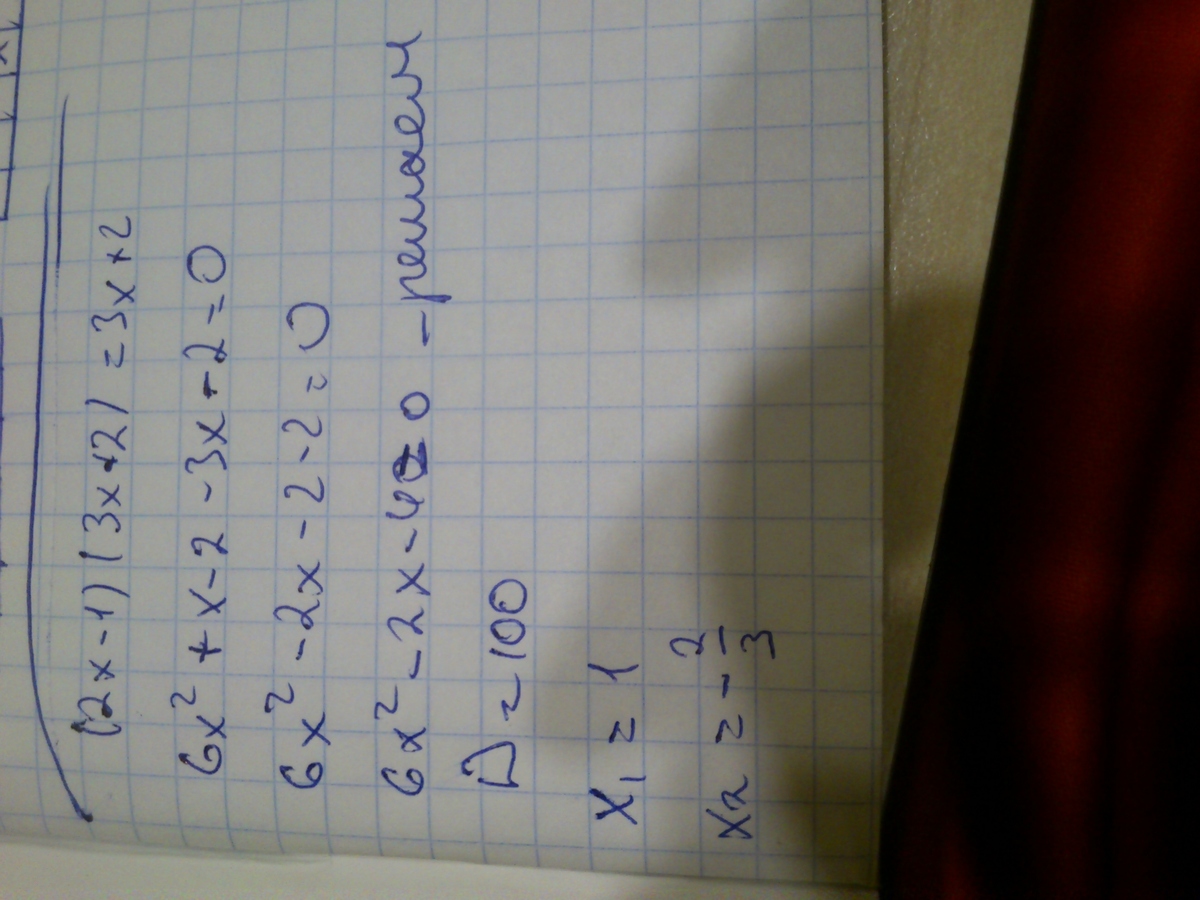 (2x-1)(3x+2)=3x+2
6x²+x-2-3x-2=0
6x²-2x-2-2=0
6x²-2x-4=0 - решаем
D=100
x₁=1
x₂=-2/3